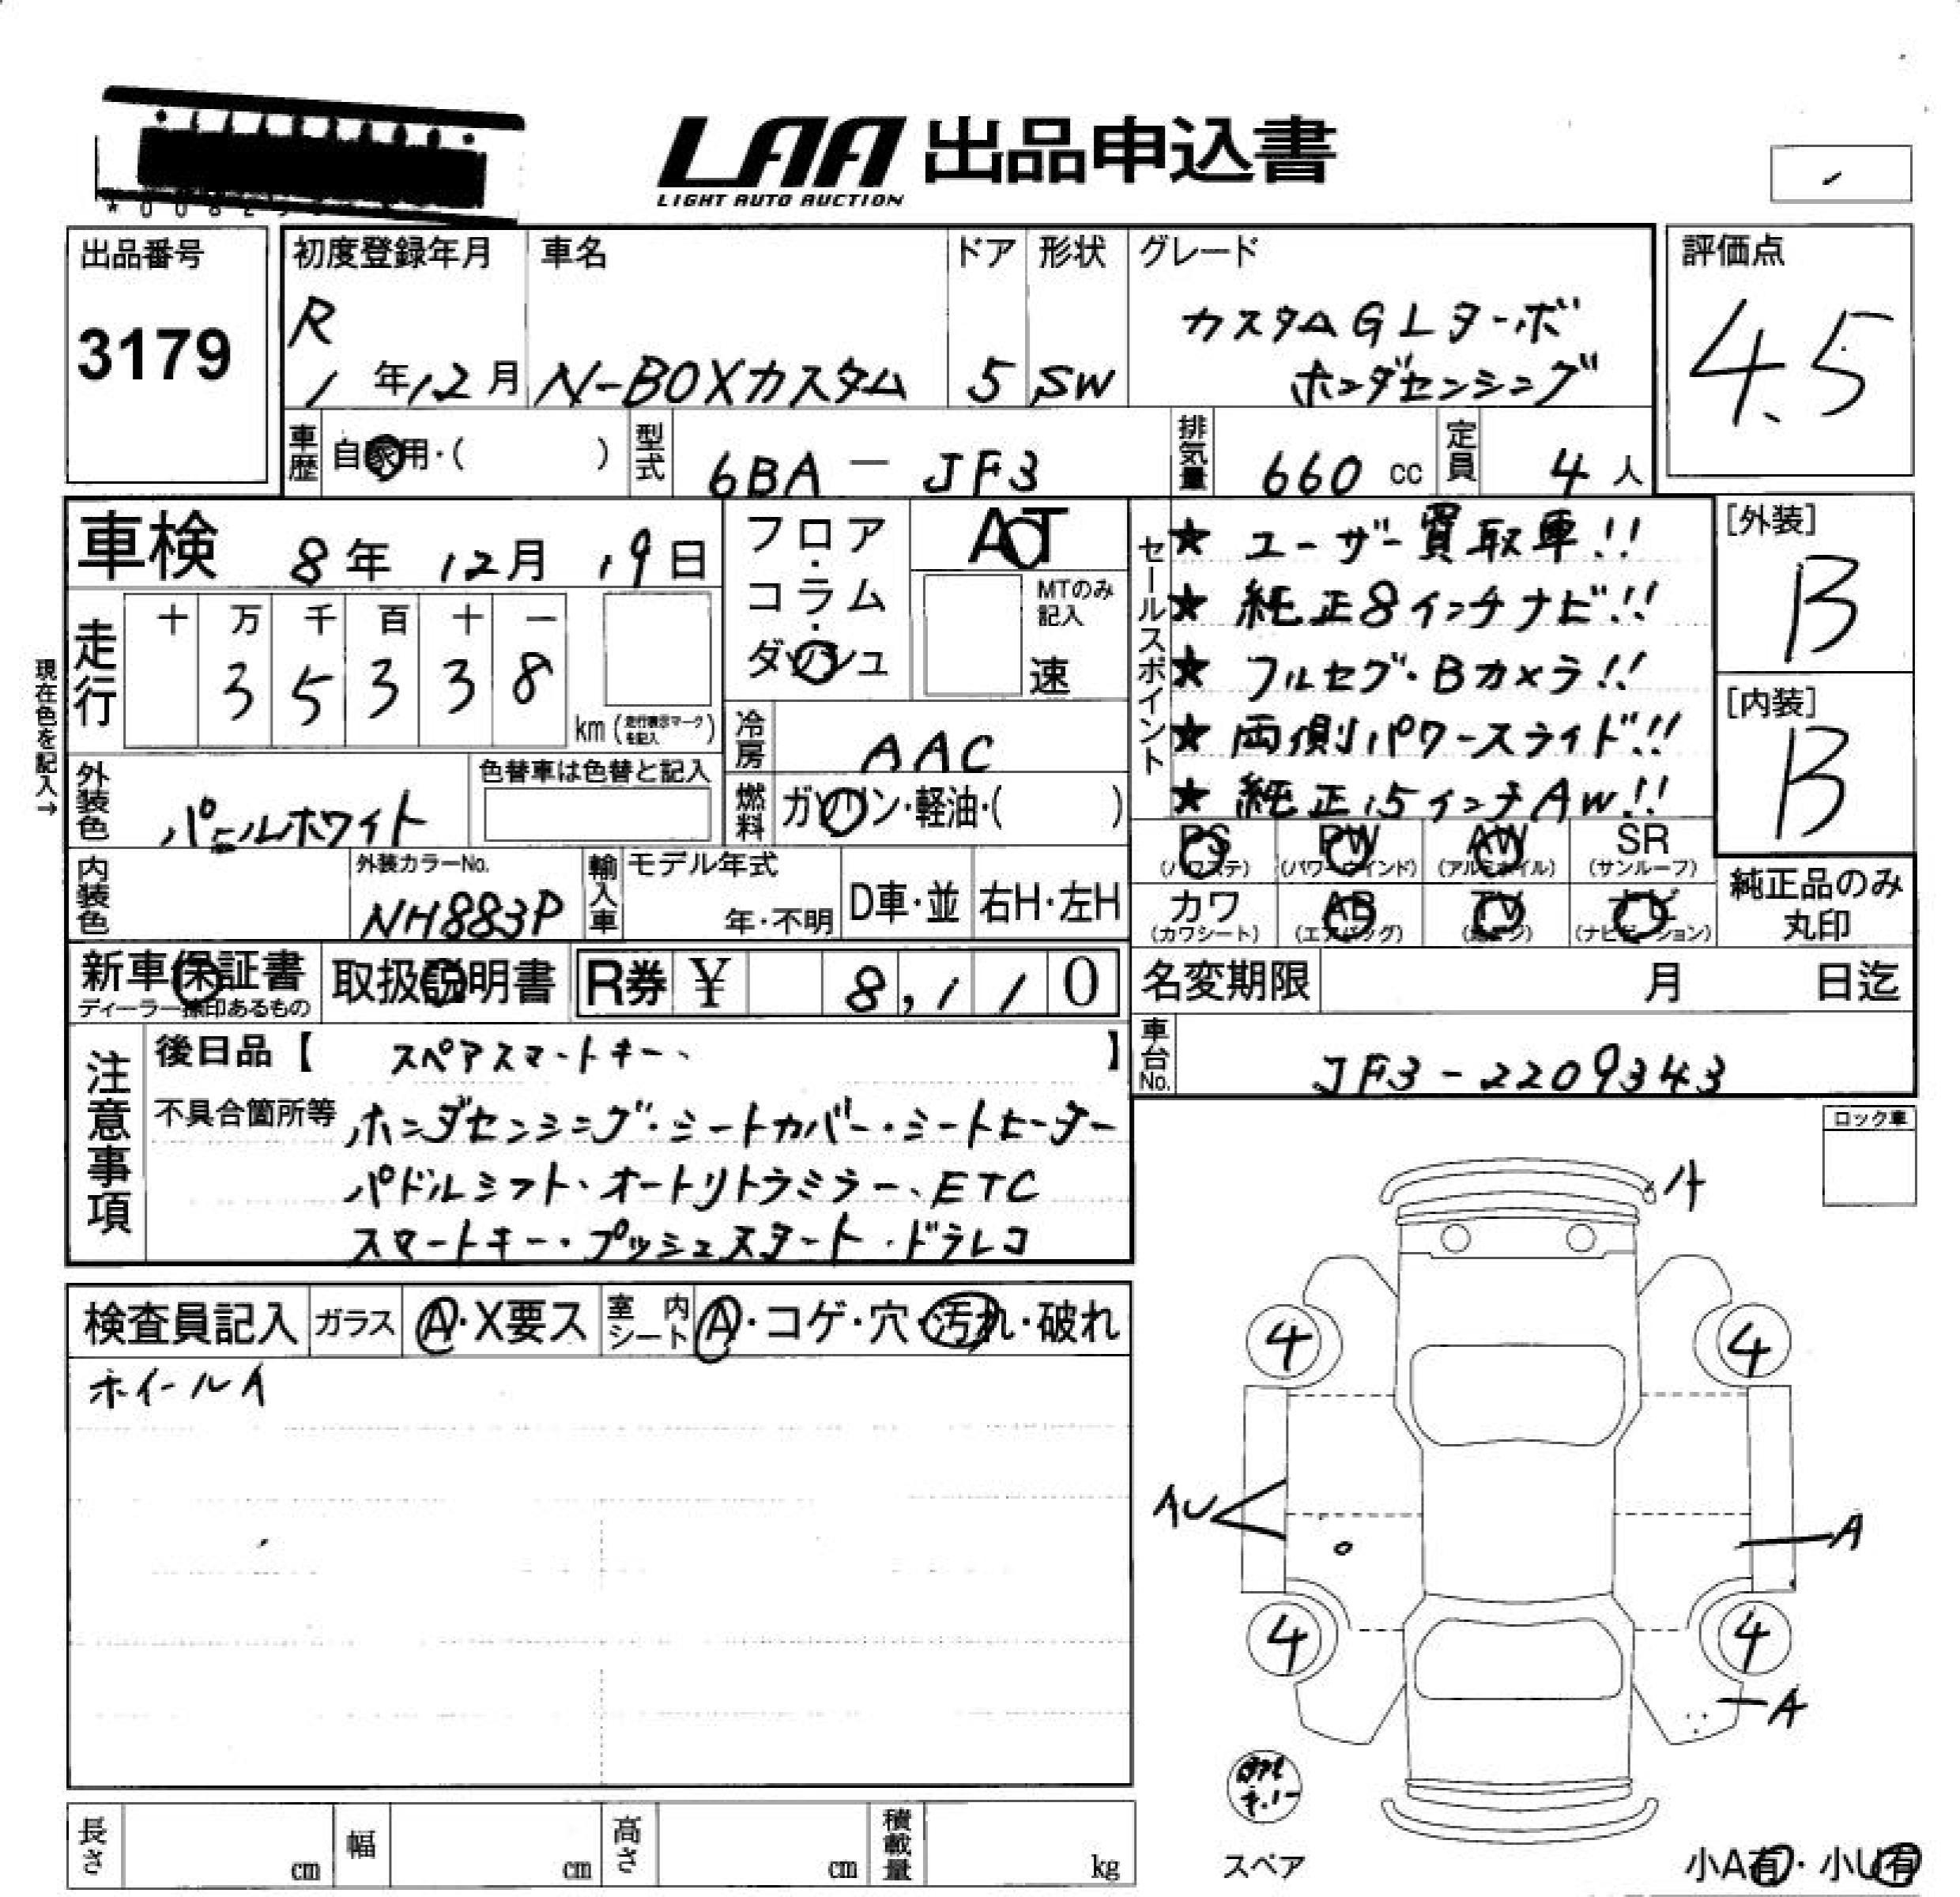 LAA 出品申込書
LIGHT AUTO AUCTION
出品番号
3179
初度登録年月
R
1年12月
車名
N-BOXカスタム
ドア
5
形状
SW
グレード
カスタムGLターボ
ホンダセンシング
評価点
4.5
車歴
自家用・( )
型式
6BA－JF3
排気量
660 cc
定員
4人
車検 8年 12月 19日
フロア・コラム・ダッシュ
AT
MTのみ記入
速
現在色を記入→
走行
十 万 千 百 十 一
3 5 3 3 8
km (走行表示マークを記入)
冷房
AAC
燃料
ガソリン・軽油・( )
外装色
パールホワイト
色替車は色替と記入
内装色
外装カラーNo.
NH883P
輸入車
モデル年式
年・不明
D車・並
右H・左H
セールスポイント
★ ユーザー買取車!!
★ 純正8インチナビ!!
★ フルセグ・Bカメラ!!
★ 両側パワースライド!!
★ 純正15インチAW!!
[外装]
B
[内装]
B
PS
(パワステ)
PW
(パワーウインド)
AW
(アルミホイル)
SR
(サンルーフ)
カワ
(カワシート)
AB
(エアバッグ)
TV
ナビ
(ナビゲーション)
純正品のみ
丸印
新車保証書
ディーラー捺印あるもの
取扱説明書
R券 ¥ 8,110
名変期限 月 日迄
車台No.
JF3-2209343
注意事項
後日品【 スペアスマートキー、 】
不具合箇所等 ホンダセンシング・シートカバー・シートヒーター
パドルシフト、オートリトラミラー、ETC
スマートキー・プッシュスタート・ドラレコ
ロック車
検査員記入
ガラス
A・X要ス
室内シート
A・コゲ・穴・汚れ・破れ
ホイールA
A
4
4
AU
A
4
4
A
スペア
小A有・小U有
長さ cm
幅 cm
高さ cm
積載量 kg